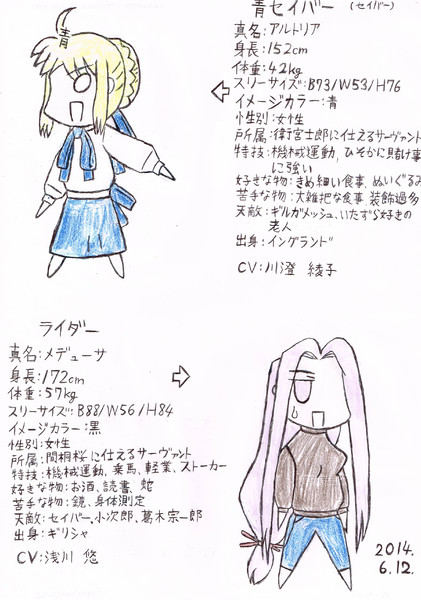 青セイバー (セイバー)
真名:アルトリア
身長:152cm
体重:42kg
スリーサイズ:B73/W53/H76
イメージカラー:青
性別:女性
所属:衛宮士郎に仕えるサーヴァント
特技:機械運動、ひそかに賭け事
に強い
好きな物:きめ細い食事、ぬいぐるみ
苦手な物:大雑把な食事、装飾過多
天敵:ギルガメッシュ、いたずら好きの
老人
出身:イングランド
CV:川澄 綾子
青
ライダー
真名:メデューサ
身長:172cm
体重:57kg
スリーサイズ:B88/W56/H84
イメージカラー:黒
性別:女性
所属:間桐桜に仕えるサーヴァント
特技:機械運動、乗馬、軽業、ストーカー
好きな物:お酒、読書、蛇
苦手な物:鏡、身体測定
天敵:セイバー、小次郎、葛木宗一郎
出身:ギリシャ
CV:浅川 悠
2014.
6.12.